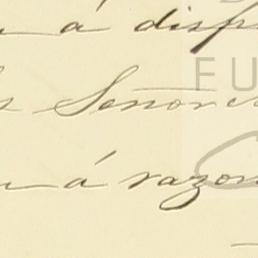 á disp
Señore
FU
á razon